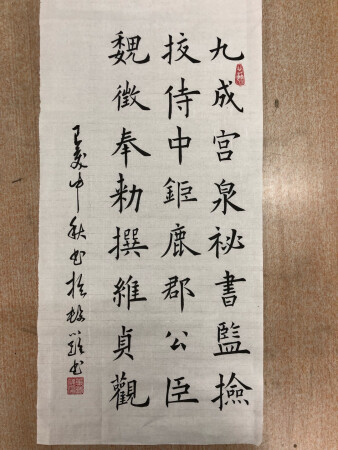 九成宫泉祕書監撿
挍侍中鉅鹿郡公臣
魏徵奉勅撰維貞觀
中秋